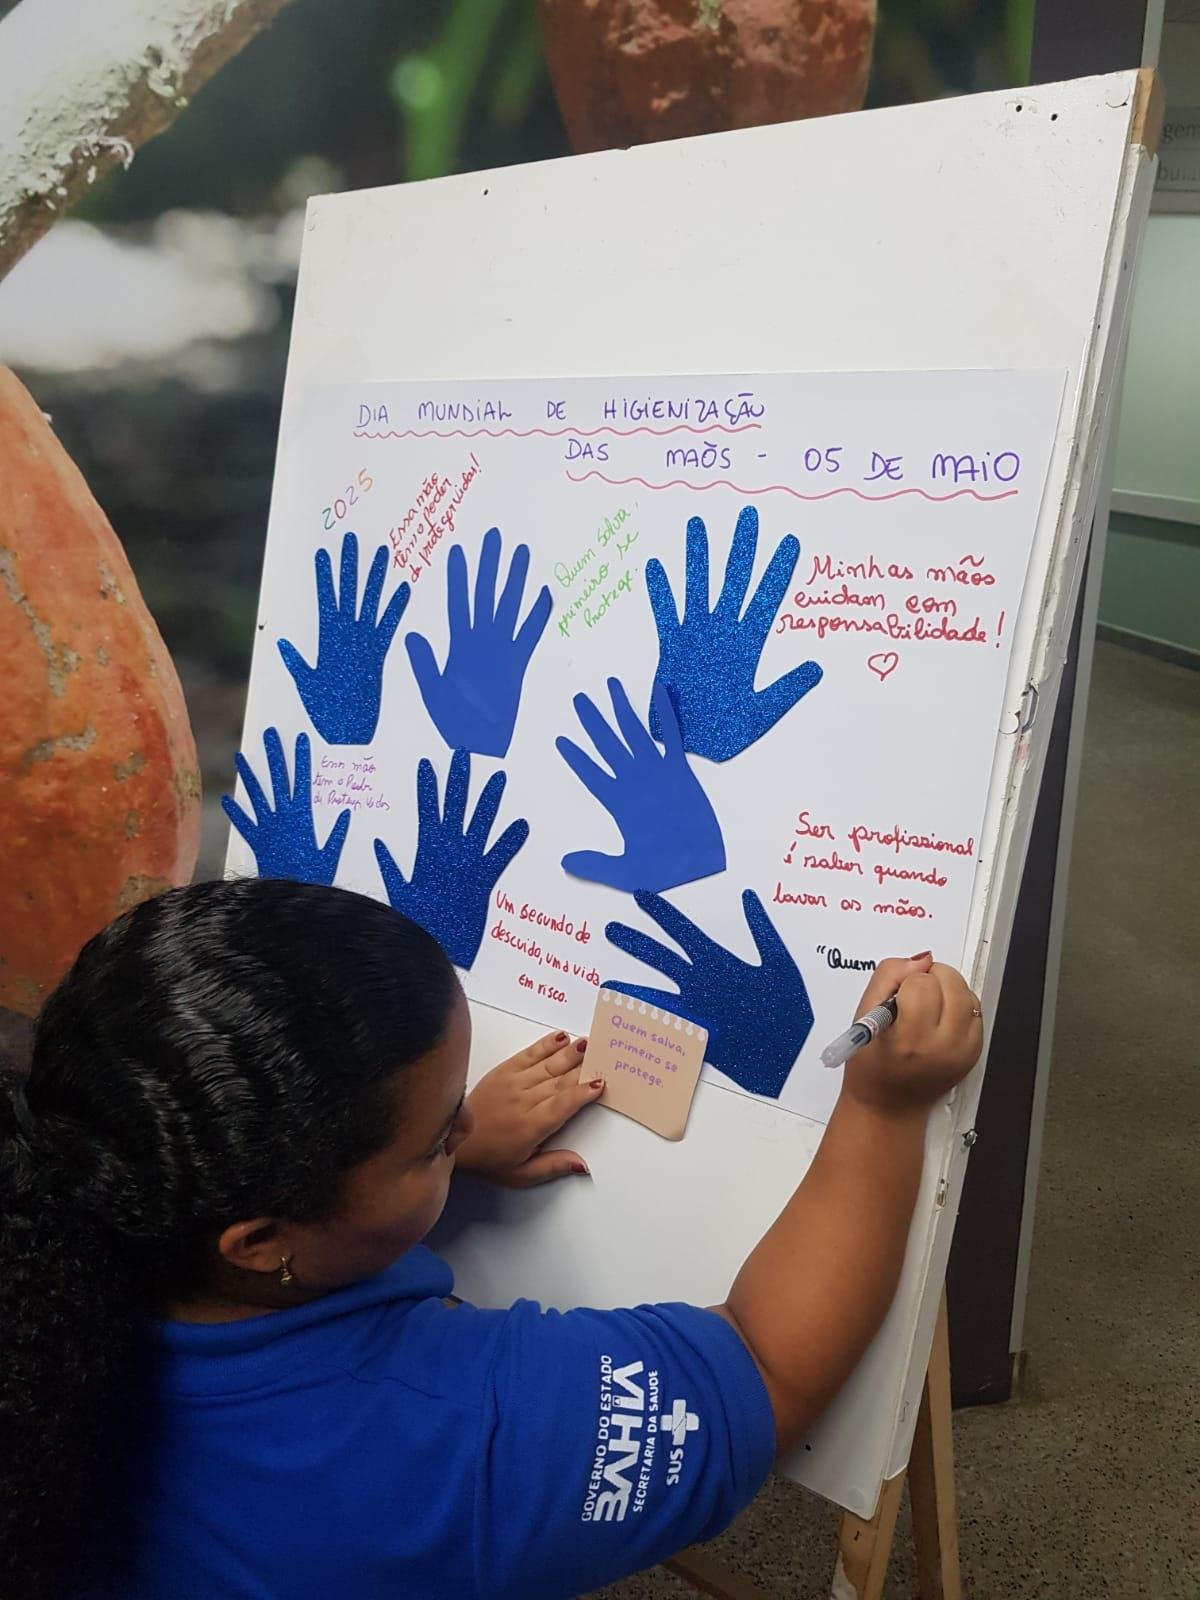 DIA MUNDIAL DE HIGIENIZAÇÃO
DAS MAÕS - 05 DE MAIO
2025
Essa mão
tem o poder
de proteger vidas!
Quem salva,
primeiro se
Protege.
Minhas mãos
cuidam com
responsabilidade!
Essa mão
tem o Poder
de Proteger Vidas
Ser profissional
é saber quando
lavar as mãos.
Um segundo de
descuido, uma vida
em risco.
"Quem
Quem salva,
primeiro se
protege.
GOVERNO DO ESTADO
BAHIA
SECRETARIA DA SAÚDE
SUS
gem